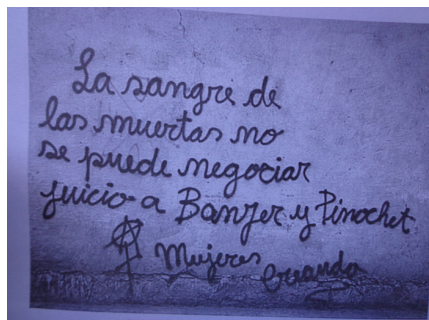 La sangre de
las muertas no
se puede negociar
juicio a Banzer y Pinochet
Mujeres Creando